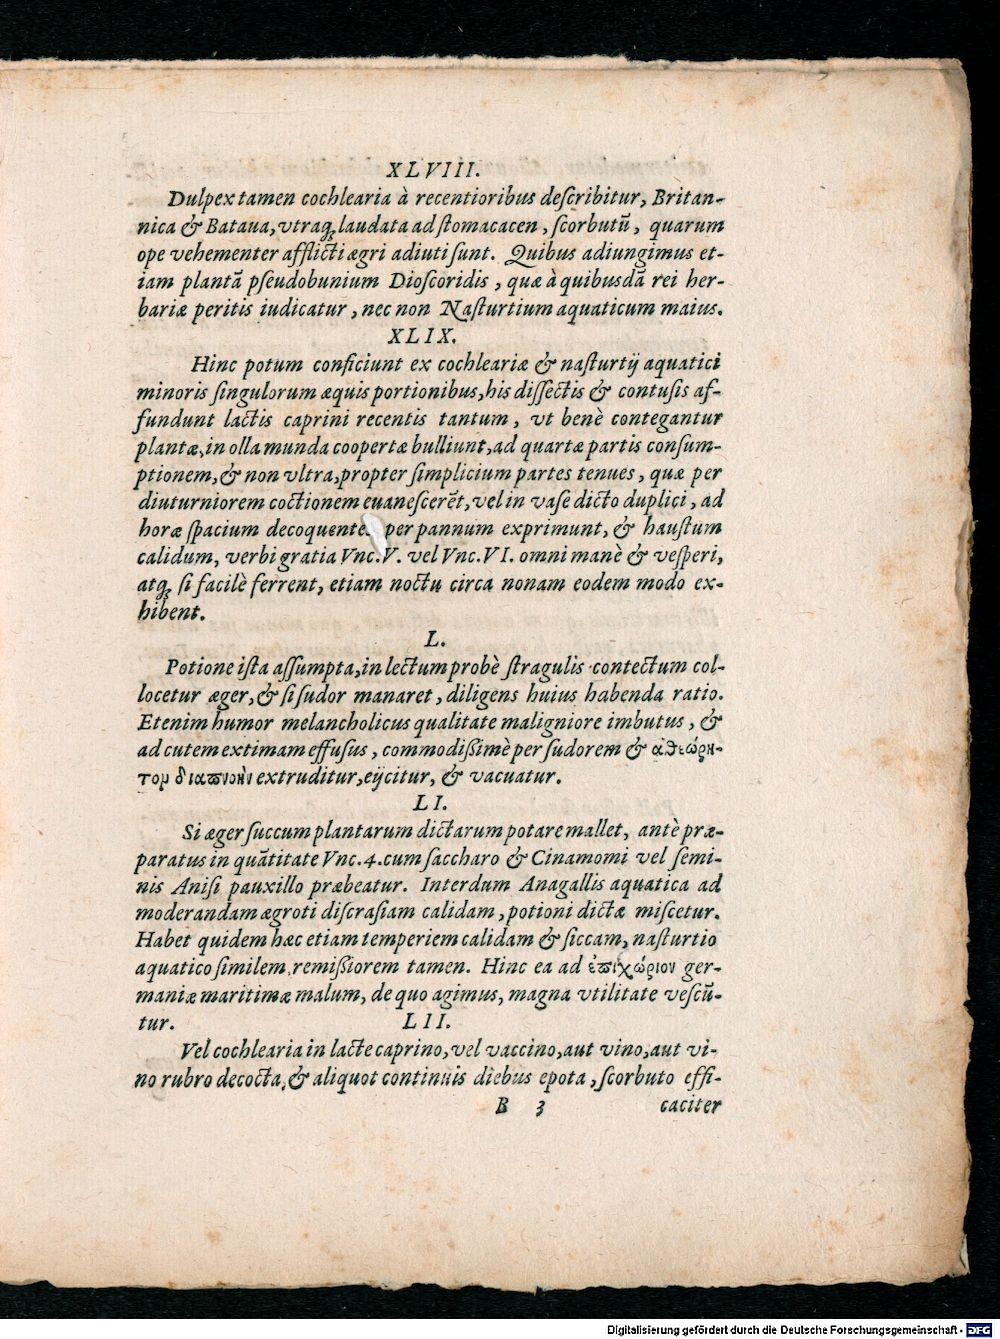 XLVIII.
Dulpex tamen cochlearia à recentioribus deſcribitur, Britan-
nica & Bataua, vtraq; laudata ad ſtomacacen, ſcorbutū, quarum
ope vehementer afflicti ægri adiuti ſunt. Quibus adiungimus et-
iam plantā pſeudobunium Dioſcoridis, quæ à quibusdā rei her-
bariæ peritis iudicatur, nec non Naſturtium aquaticum maius.
XLIX.
Hinc potum conficiunt ex cochleariæ & naſturtij aquatici
minoris ſingulorum æquis portionibus, his diſſectis & contuſis af-
fundunt lactis caprini recentis tantum, vt benè contegantur
plantæ, in olla munda coopertæ bulliunt, ad quartæ partis conſum-
ptionem, & non vltra, propter ſimplicium partes tenues, quæ per
diuturniorem coctionem euaneſcerēt, vel in vaſe dicto duplici, ad
horæ ſpacium decoquentes per pannum exprimunt, & hauſtum
calidum, verbi gratia Vnc. V. vel Vnc. VI. omni manè & veſperi,
atq; ſi facilè ferrent, etiam noctu circa nonam eodem modo ex-
hibent.
L.
Potione iſta aſſumpta, in lectum probè ſtragulis contectum col-
locetur æger, & ſi ſudor manaret, diligens huius habenda ratio.
Etenim humor melancholicus qualitate maligniore imbutus, &
ad cutem extimam effuſus, commodißimè per ſudorem & ἀθεώρη-
τον διαπνοὴν extruditur, eijcitur, & vacuatur.
LI.
Si æger ſuccum plantarum dictarum potare mallet, antè præ-
paratus in quātitate Vnc. 4. cum ſaccharo & Cinamomi vel ſemi-
nis Aniſi pauxillo præbeatur. Interdum Anagallis aquatica ad
moderandam ægroti diſcraſiam calidam, potioni dictæ miſcetur.
Habet quidem hæc etiam temperiem calidam & ſiccam, naſturtio
aquatico ſimilem, remißiorem tamen. Hinc ea ad ἐπιχώριον ger-
maniæ maritimæ malum, de quo agimus, magna vtilitate veſcū-
tur.
LII.
Vel cochlearia in lacte caprino, vel vaccino, aut vino, aut vi-
no rubro decocta, & aliquot continuis diebus epota, ſcorbuto effi-
B 3 caciter
Digitalisierung gefördert durch die Deutsche Forschungsgemeinschaft - DFG